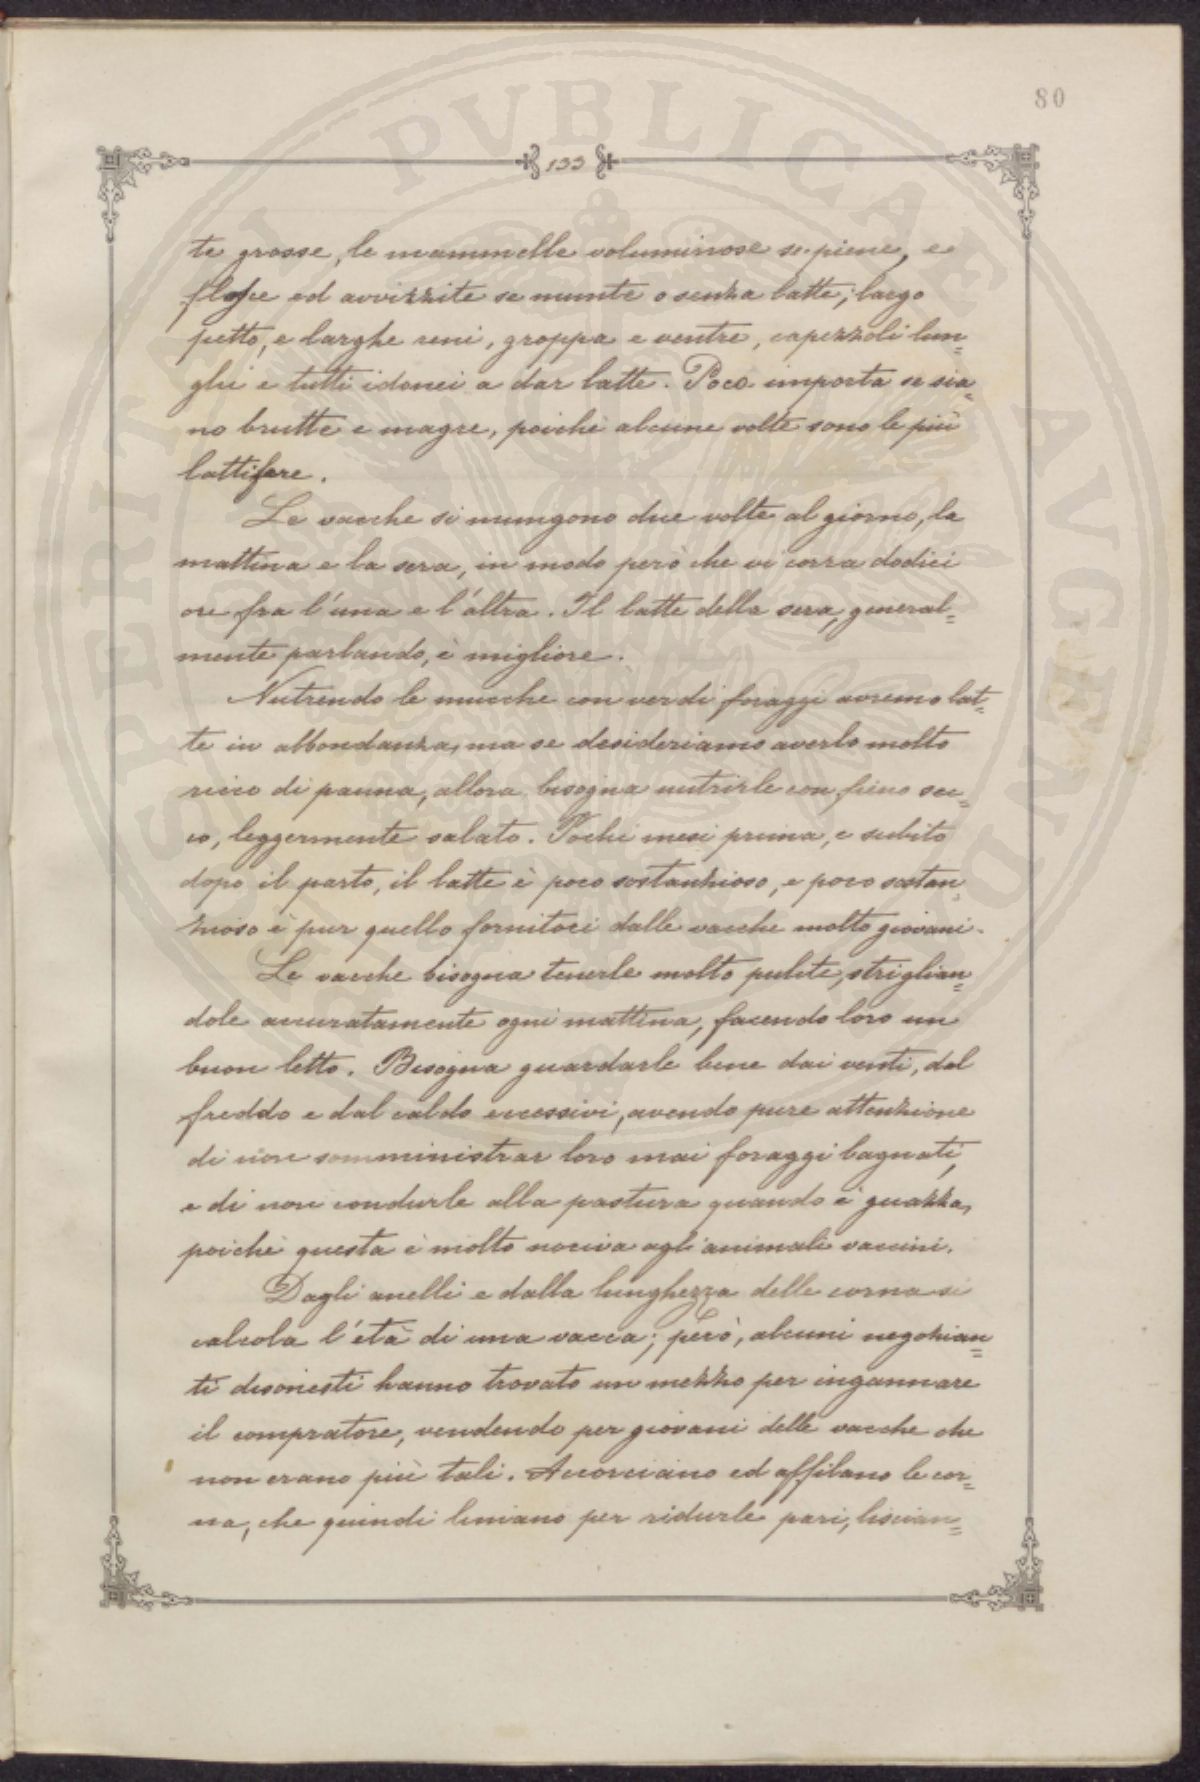 80
133
te grosse, le mammelle voluminose se piene, e
flosce ed avvizzite se munte o senza latte; largo
petto, e larghe reni, groppa e ventre, capezzoli lun=
ghi e tutti idonei a dar latte. Poco importa se sia=
no brutte e magre, poichè alcune volte sono le più
lattifere.
Le vacche si mungono due volte al giorno, la
mattina e la sera, in modo però che vi corra dodici
ore fra l'una e l'altra. Il latte della sera, general=
mente parlando, è migliore.
Nutrendo le mucche con verdi foraggi avremo lat=
te in abbondanza, ma se desideriamo averlo molto
ricco di panna, allora bisogna nutrirle con fieno sec=
co, leggermente salato. Pochi mesi prima, e subito
dopo il parto, il latte è poco sostanzioso, e poco sostan=
zioso è pur quello fornitoci dalle vacche molto giovani.
Le vacche bisogna tenerle molto pulite, striglian=
dole accuratamente ogni mattina, facendo loro un
buon letto. Bisogna guardarle bene dai venti, dal
freddo e dal caldo eccessivi, avendo pure attenzione
di non somministrar loro mai foraggi bagnati,
e di non condurle alla pastura quando è guazza,
poichè questa è molto nociva agli animali vaccini.
Dagli anelli e dalla lunghezza delle corna si
calcola l'età di una vacca; però, alcuni negozian=
ti disonesti hanno trovato un mezzo per ingannare
il compratore, vendendo per giovani delle vacche che
non erano più tali. Accorciano ed affilano le cor=
na, che quindi limano per ridurle pari, liscian=
SPERITAT PVBLICAE AVGENDAE